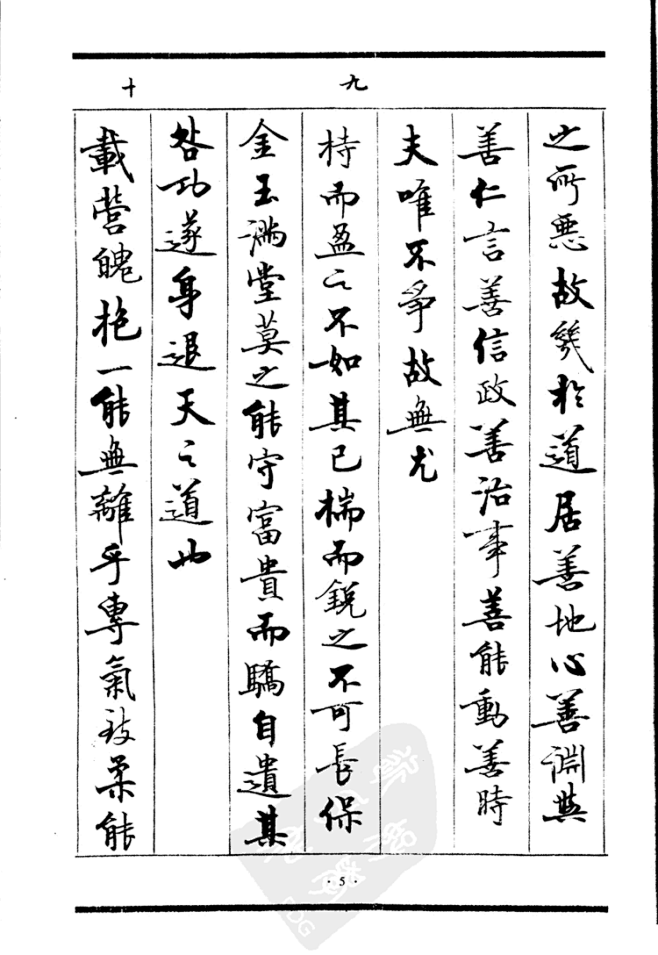 之所惡故幾於道居善地心善淵與
善仁言善信政善治事善能動善時
夫唯不爭故無尤
九
持而盈之不如其已揣而銳之不可長保
金玉滿堂莫之能守富貴而驕自遺其
咎功遂身退天之道也
十
載營魄抱一能無離乎專氣致柔能
· 5 ·